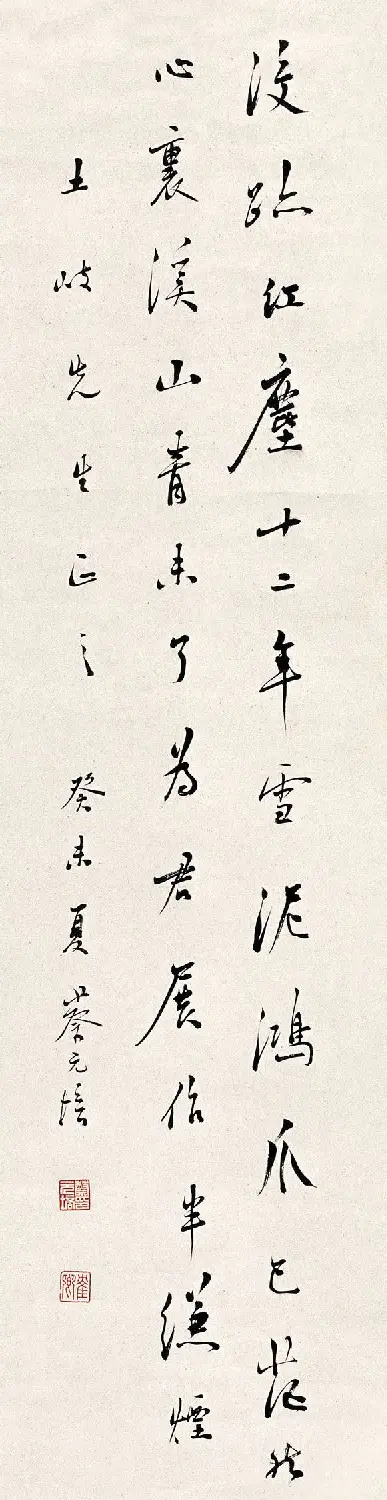 没跡紅塵十二年雪泥鴻爪已茫然
心裏溪山青未了為君展作半縑煙
土岐先生正之 癸未夏蔡元培